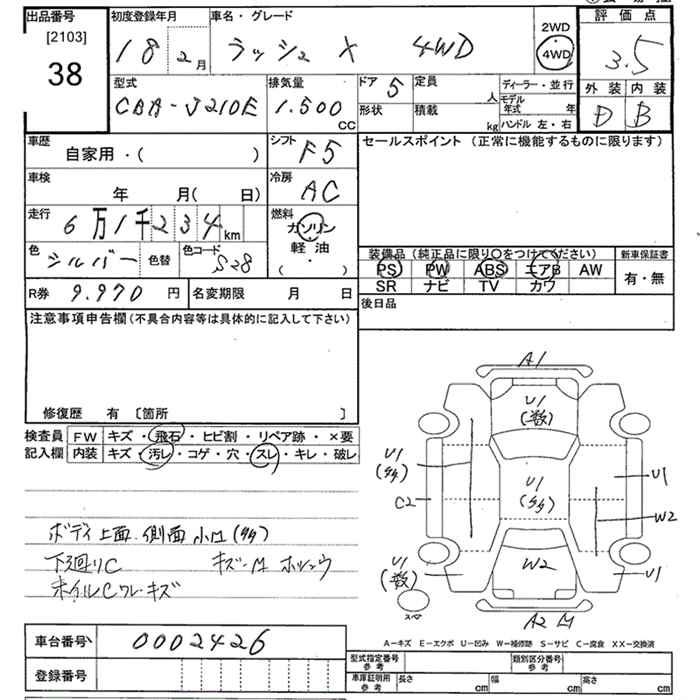 出品番号 初度登録年月 車名・グレード 2WD 評価点
[2103] 18 2月 ラッシュ X 4WD 4WD 3.5
38
型式 排気量 ドア 5 定員 人 ディーラー・並行 外装 内装
CBA-J210E 1.500 CC 形状 積載 kg モデル年式 年 D B
ハンドル 左・右
車歴 シフト セールスポイント (正常に機能するものに限ります)
自家用・( ) F5
車検 冷房
年 月( 日) AC
走行 燃料
6万1千234km ガソリン
色 色替 色コード 軽油
シルバー S28 ( ・ )
装備品 (純正品に限り○をつけてください) 新車保証書
PS PW ABS エアB AW 有・無
SR ナビ TV カワ
R券 9.970 円 名変期限 月 日 後日品
注意事項申告欄(不具合内容等は具体的に記入して下さい)
修復歴 有 〔箇所 〕
検査員 FW キズ・飛石・ヒビ割・リペア跡・×要
記入欄 内装 キズ・汚レ・コゲ・穴・スレ・キレ・破レ
A1
U1
(数)
U1
(多々)
U1
(多々)
U1
C2
W2
W2
U1
(数)
U1
スペア
A2
ボディ上面.側面 小凹(多々)
下廻りC キズ・凹
ホイルCワレ・キズ
車台番号 0002426
A-キズ E-エクボ U-凹み W-補修跡 S-サビ C-腐食 XX-交換済
登録番号
型式指定番号 参考 類別区分番号 参考
車庫証明用 参考 長さ cm 幅 cm 高さ cm